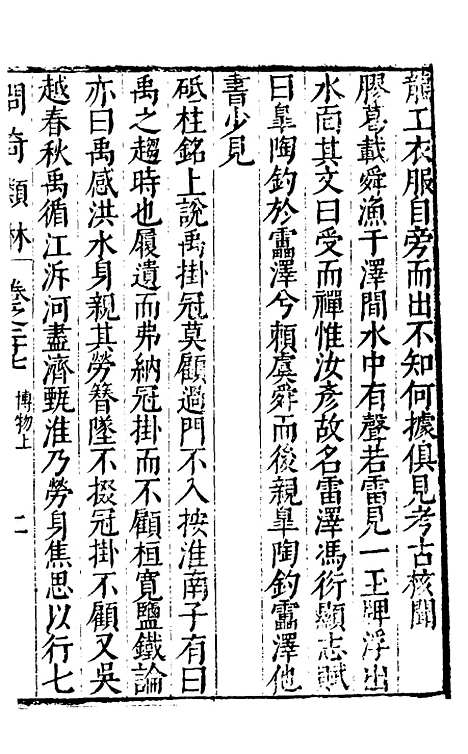 龍工衣服自旁而出不知何據俱見考古核聞
膠葛載舜漁于澤間水中有聲若雷見一玉牌浮出
水面其文曰受而禪惟汝彥故名雷澤馮衍顯志賦
曰皐陶釣於靁澤兮賴虞舜而後親皐陶釣靁澤他
書少見
砥柱銘上說禹掛冠莫顧過門不入按淮南子有曰
禹之趨時也履遺而弗納冠掛而不顧桓寬鹽鐵論
亦曰禹感洪水身親其勞簪墜不掇冠掛不顧又吳
越春秋禹循江泝河盡濟甄淮乃勞身焦思以行七
問奇類林 卷之二十七 博物上 二